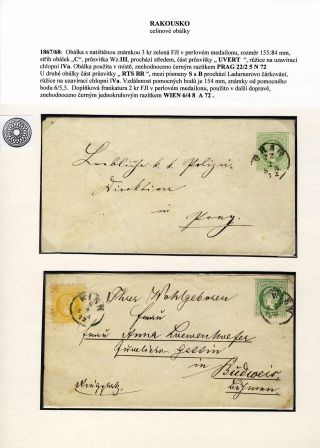 RAKOUSKO
celinové obálky
1867/68: Obálka s natištěnou známkou 3 kr zelená FJI v perlovém medailonu, rozměr 155:84 mm,
střih obálek „C“, průsvitka Wz.III, prochází středem, část průsvitky „ UVERT “, růžice na uzavírací
chlopni IVa. Obálka použita v místě, znehodnoceno černým razítkem PRAG 22/2 5 N 72
U druhé obálky část průsvitky „ RTS BR „ mezi písmeny S a B prochází Ladurnerovo čárkování,
růžice na uzavírací chlopni IVa. Vzdálenost pomocných bodů je 154 mm, známkové pole od pomocného
bodu 6/5,5. Doplňková frankatura 2 kr FJI v perlovém medailonu, použito v další dopravě,
znehodnoceno černým jednokruhovým razítkem WIEN 6/4 8 A 72 .
PRAG
Löbliche k k Polizei
Direktion
in
Prag
WIEN
WIEN
Ihrer Wohlgeboren
Frau Anna Loewenhoefer
in Budweis
Böhmen